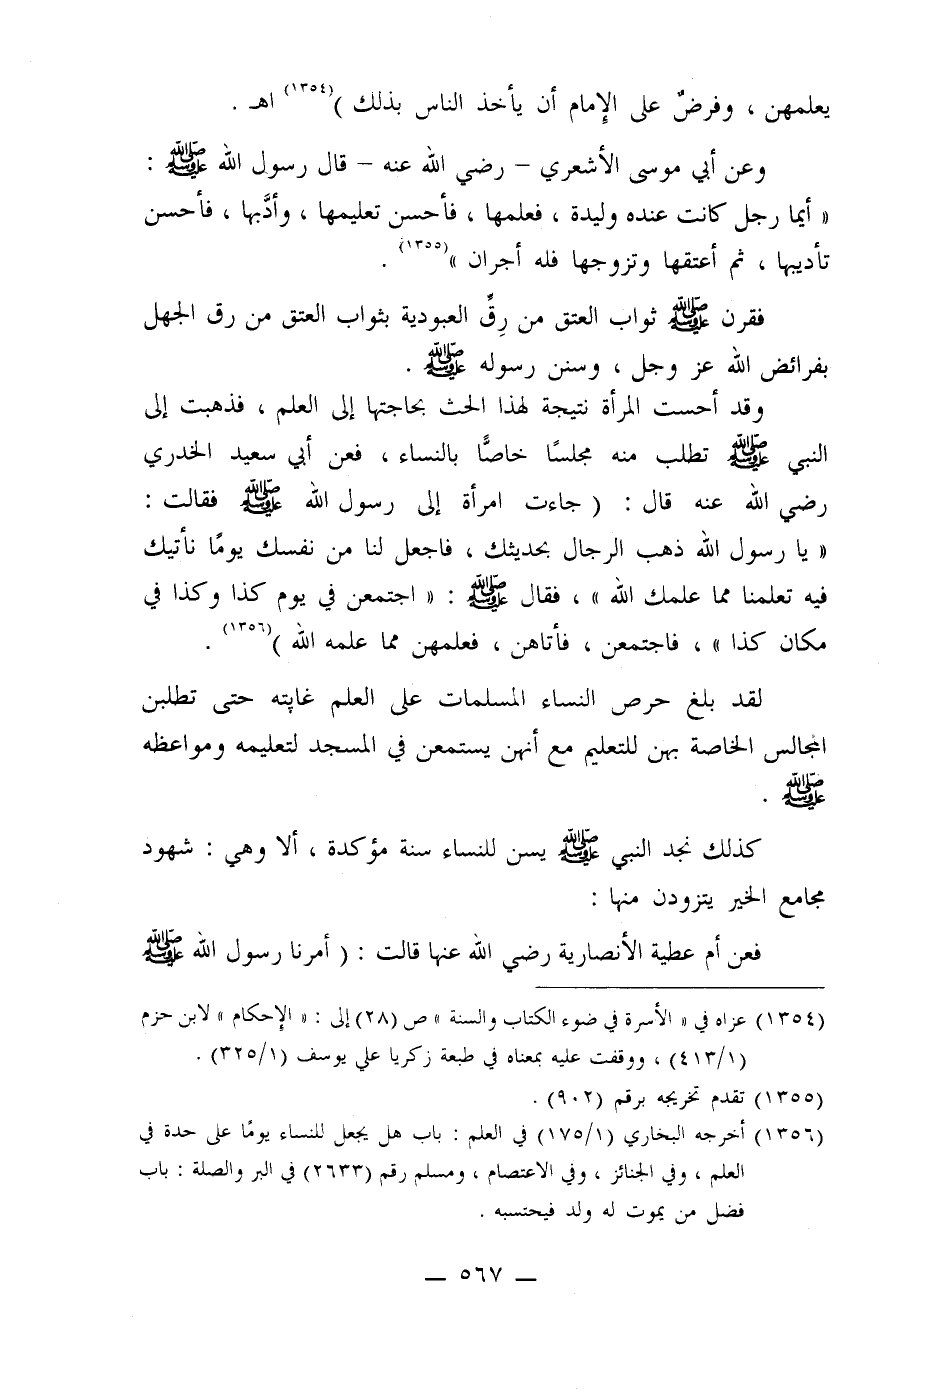 يعلمهن ، وفرضٌ على الإمام أن يأخذ الناس بذلك )(١٣٥٤) اهـ .
وعن أبي موسى الأشعري – رضي الله عنه – قال رسول الله ﷺ :
« أيما رجل كانت عنده وليدة ، فعلمها ، فأحسن تعليمها ، وأدَّبها ، فأحسن
تأديبها ، ثم أعتقها وتزوجها فله أجران »(١٣٥٥) .
فقرن ﷺ ثواب العتق من رِقِّ العبودية بثواب العتق من رق الجهل
بفرائض الله عز وجل ، وسنن رسوله ﷺ .
وقد أحست المرأة نتيجة لهذا الحث بحاجتها إلى العلم ، فذهبت إلى
النبي ﷺ تطلب منه مجلسًا خاصًّا بالنساء ، فعن أبي سعيد الخدري
رضي الله عنه قال : ( جاءت امرأة إلى رسول الله ﷺ فقالت :
« يا رسول الله ذهب الرجال بحديثك ، فاجعل لنا من نفسك يومًا نأتيك
فيه تعلمنا مما علمك الله » ، فقال ﷺ : « اجتمعن في يوم كذا وكذا في
مكان كذا » ، فاجتمعن ، فأتاهن ، فعلمهن مما علمه الله )(١٣٥٦) .
لقد بلغ حرص النساء المسلمات على العلم غايته حتى تطلبن
المجالس الخاصة بهن للتعليم مع أنهن يستمعن في المسجد لتعليمه ومواعظه
ﷺ .
كذلك نجد النبي ﷺ يسن للنساء سنة مؤكدة ، ألا وهي : شهود
مجامع الخير يتزودن منها :
فعن أم عطية الأنصارية رضي الله عنها قالت : ( أمرنا رسول الله ﷺ
(١٣٥٤) عزاه في « الأسرة في ضوء الكتاب والسنة » ص (٢٨) إلى : « الإحكام » لابن حزم
(٤١٣/١) ، ووقفت عليه بمعناه في طبعة زكريا علي يوسف (٣٢٥/١) .
(١٣٥٥) تقدم تخريجه برقم (٩٠٢) .
(١٣٥٦) أخرجه البخاري (١٧٥/١) في العلم : باب هل يجعل للنساء يومًا على حدة في
العلم ، وفي الجنائز ، وفي الاعتصام ، ومسلم رقم (٢٦٣٣) في البر والصلة : باب
فضل من يموت له ولد فيحتسبه .
— ٥٦٧ —